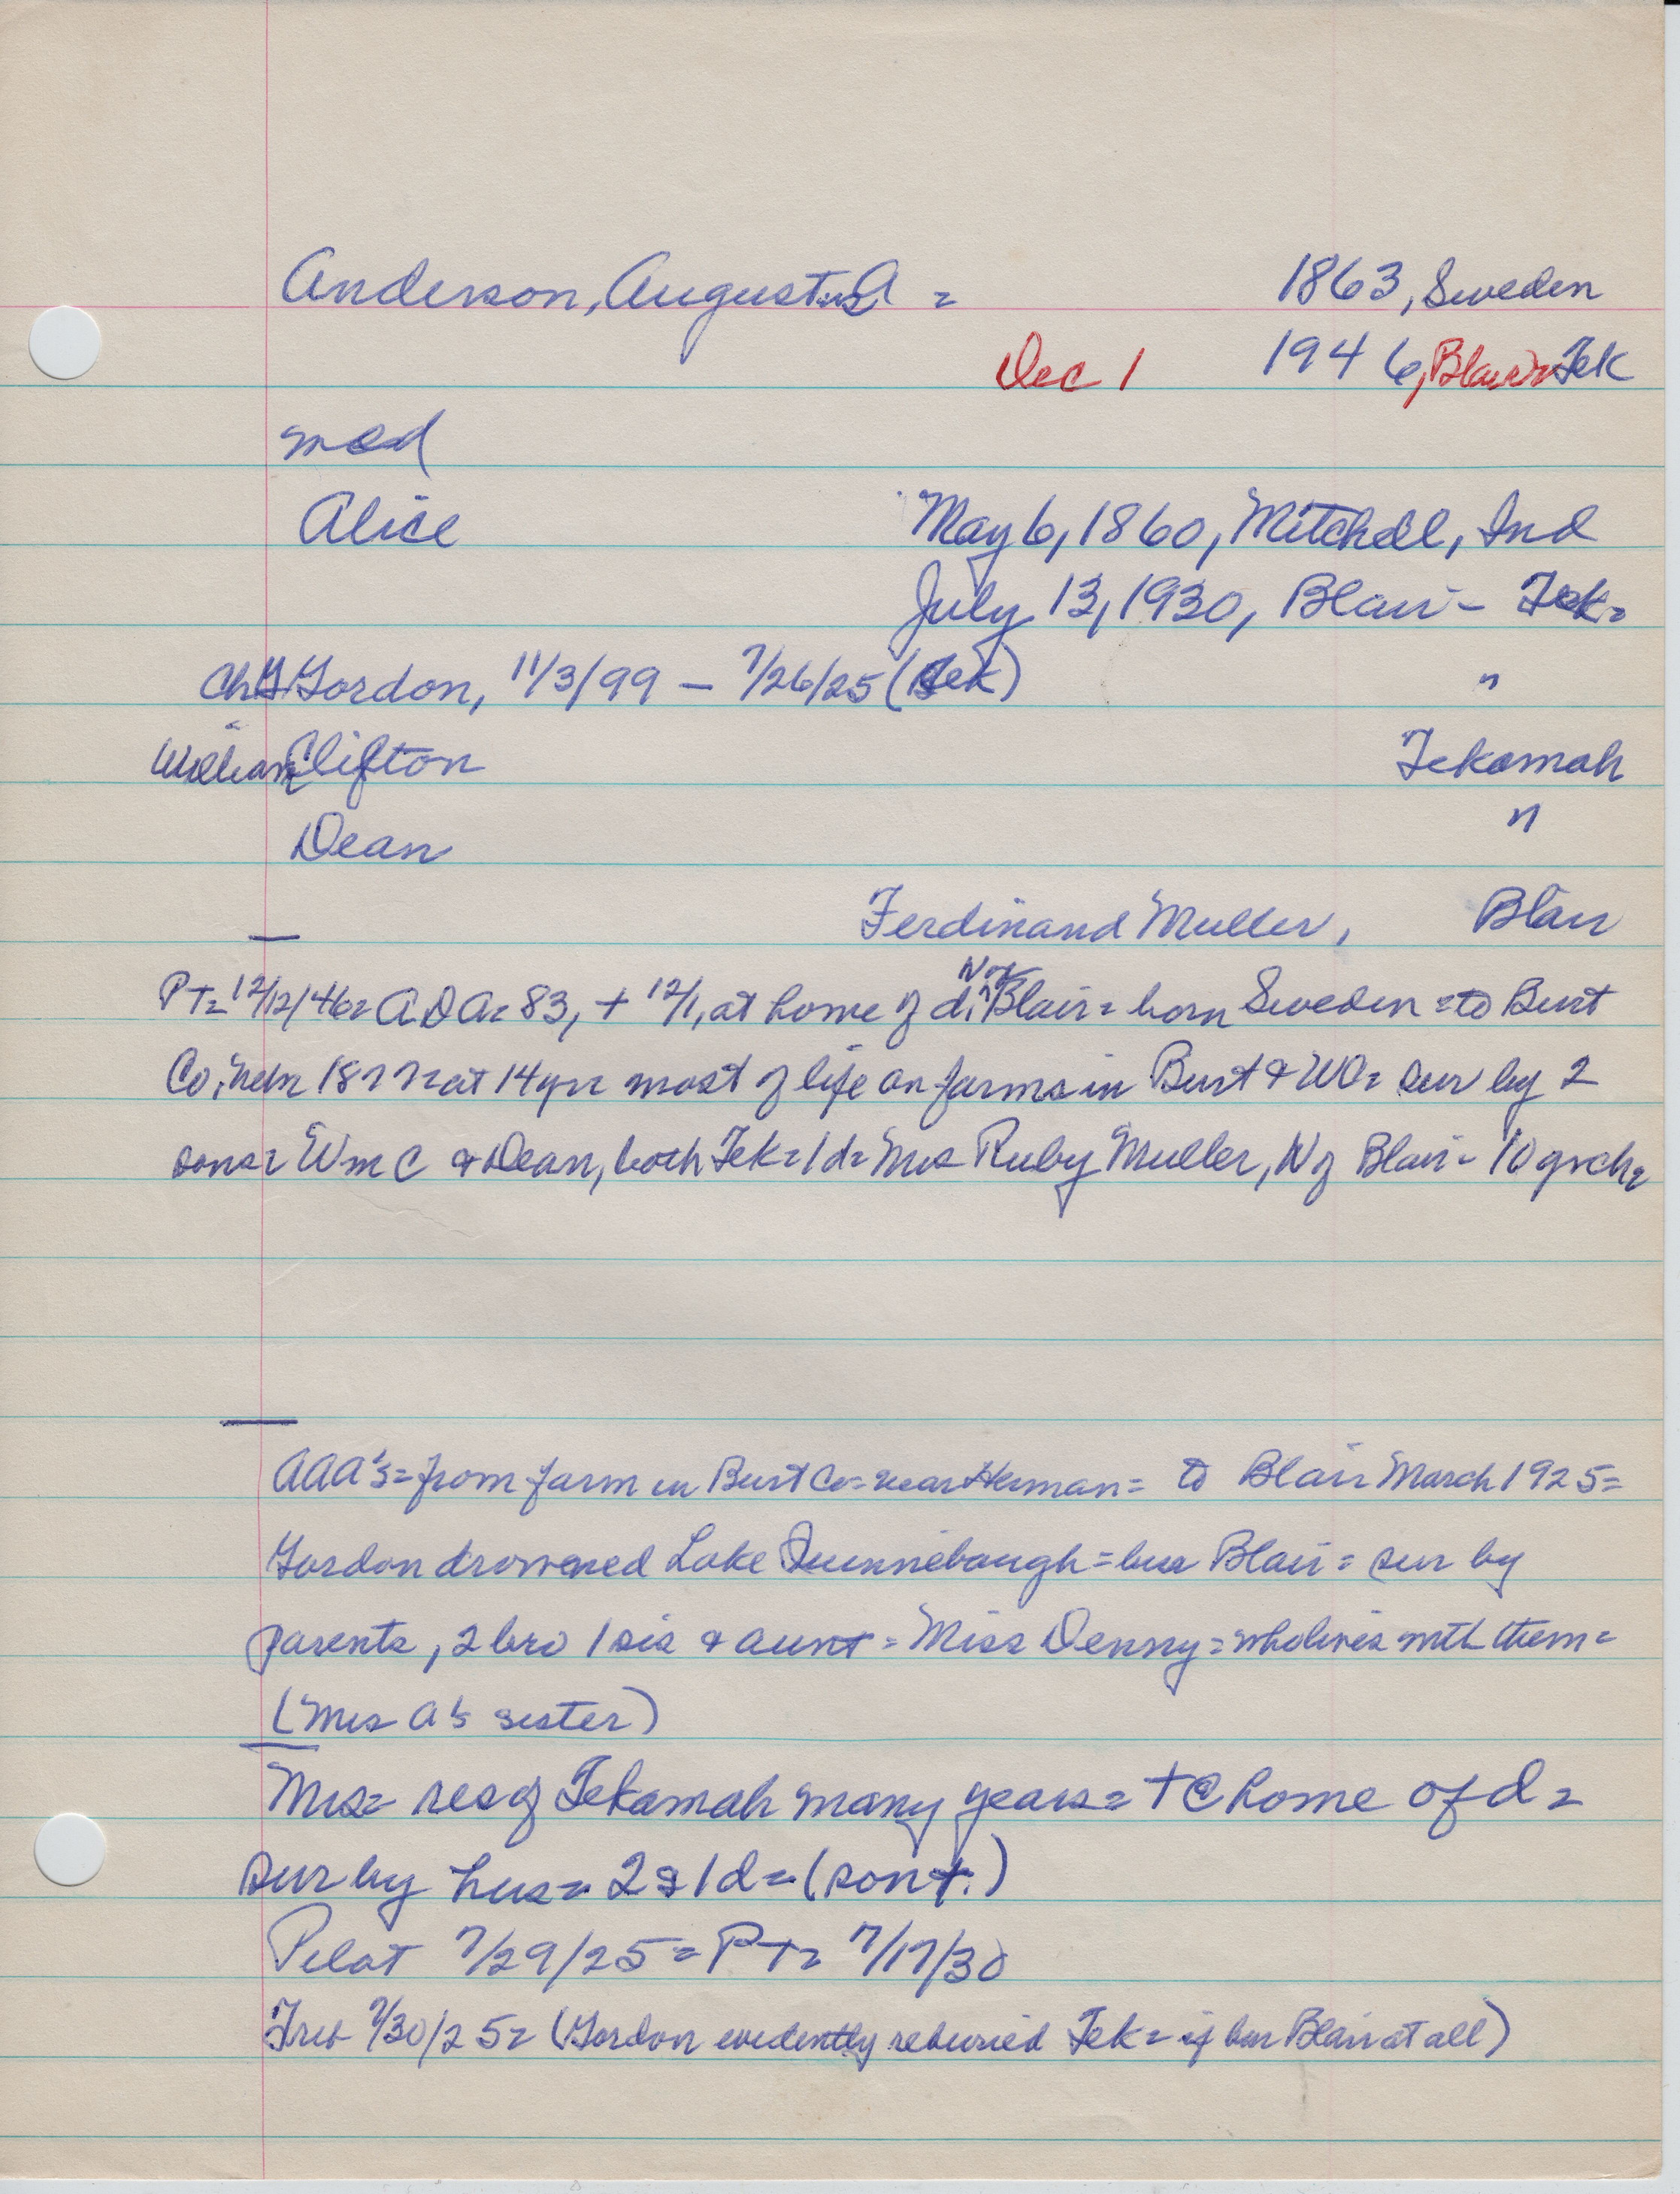 Anderson, August A = 1863, Sweden
Dec 1 1946, Blair Tek
mod
Alice May 6, 1860, Mitchell, Ind
July 13, 1930, Blair - Tek=
Ch Gordon, 11/3/99 - 7/26/25 (Tek) "
William Clifton Tekamah
Dean "
Ferdinand Muller, Blair
PT= 12/12/46= A 83, + 12/1, at home of d, N of Blair= born Sweden = to Burt
Co, Nebr 1877= at 14 yrs= most of life on farms in Burt & WO= sur by 2
sons= Wm C & Dean, both Tek= 1 d= Mrs Ruby Muller, N of Blair - 10 grch=
AAA's= from farm in Burt Co= near Herman= to Blair March 1925=
Gordon drowned Lake Quinnebaugh= bur Blair= sur by
parents, 2 bro 1 sis & aunt= Miss Denny= who lives with them=
(Mrs A's sister)
Mrs= res of Tekamah many years= + @ home of d=
sur by hus= 2 s 1 d= (son +.)
Pilot 7/29/25= PT= 7/17/30
Trib 7/30/25= (Gordon evidently reburied Tek= if bur Blair at all)